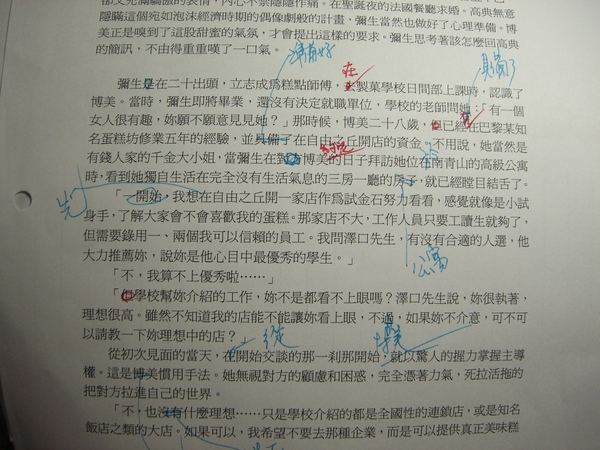 都又充滿驕傲的表情，內心不禁隱隱作痛。在聖誕夜的法國餐廳求婚。高典無意
隱瞞這個宛如泡沫經濟時期的偶像劇般的計畫，彌生當然也做好了心理準備。博
美正是嗅到了這股甜蜜的氣氛，才會提出這樣的要求。彌生思考著該怎麼回高典
的簡訊，不由得重重嘆了一口氣。
準備好
具備了
在
彌生是在二十出頭，立志成為糕點師傅，在製菓學校日間部上課時，認識了
博美。當時，彌生即將畢業，還沒有決定就職單位，學校的老師問她：「有一個
女人很有趣，妳願不願意見見她？」那時候，博美二十八歲，但已經在巴黎某知
名蛋糕坊修業五年的經驗，並具備了在自由之丘開店的資金。不用說，她當然是
約定
有錢人家的千金大小姐，當彌生在對博美的日子拜訪她位在南青山的高級公寓
時，看到她獨自生活在完全沒有生活氣息的三房一廳的房子，就已經瞠目結舌了。
先
「一開始，我想在自由之丘開一家店作為試金石努力看看，感覺就像是小試
身手，了解大家會不會喜歡我的蛋糕。那家店不大，工作人員只要工讀生就夠了，
但需要錄用一、兩個我可以信賴的員工。我問澤口先生，有沒有合適的人選，他
大力推薦妳，說妳是他心目中最優秀的學生。」
公寓
「不，我算不上優秀啦……」
「但學校幫妳介紹的工作，妳不是都看不上眼嗎？澤口先生說，妳很執著，
理想很高。雖然不知道我的店能不能讓妳看上眼，不過，如果妳不介意，可不可
以請教一下妳理想中的店？
從初次見面的當天，在開始交談的那一剎那開始，就以驚人的握力掌握主導
權。這是博美慣用手法。她無視對方的顧慮和困惑，完全憑著力氣，死拉活拖的
把對方拉進自己的世界。
「不，也沒有什麼理想……只是學校介紹的都是全國性的連鎖店，或是知名
飯店之類的大店。如果可以，我希望不要去那種企業，而是可以提供真正美味糕